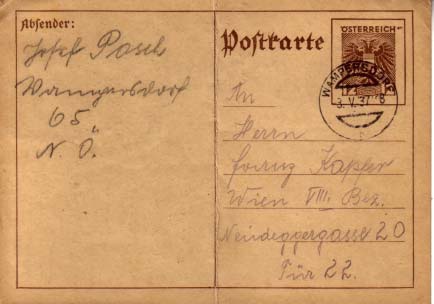 Absender:
Josef Posch
Wampersdorf
65
N. Ö.
Postkarte
ÖSTERREICH
WAMPERSDORF
3. V. 37
An
Herrn
Franz Kapfer
Wien VIII. Bez.
Neudeggergasse 20
Tür 22.